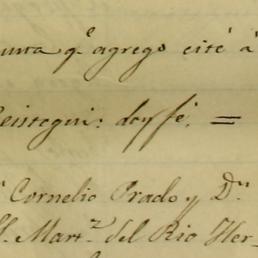 unta q.e agrego cité á
eistegui: doy fé. =
Cornelio Prado y D.n
Mart.z del Rio Her-